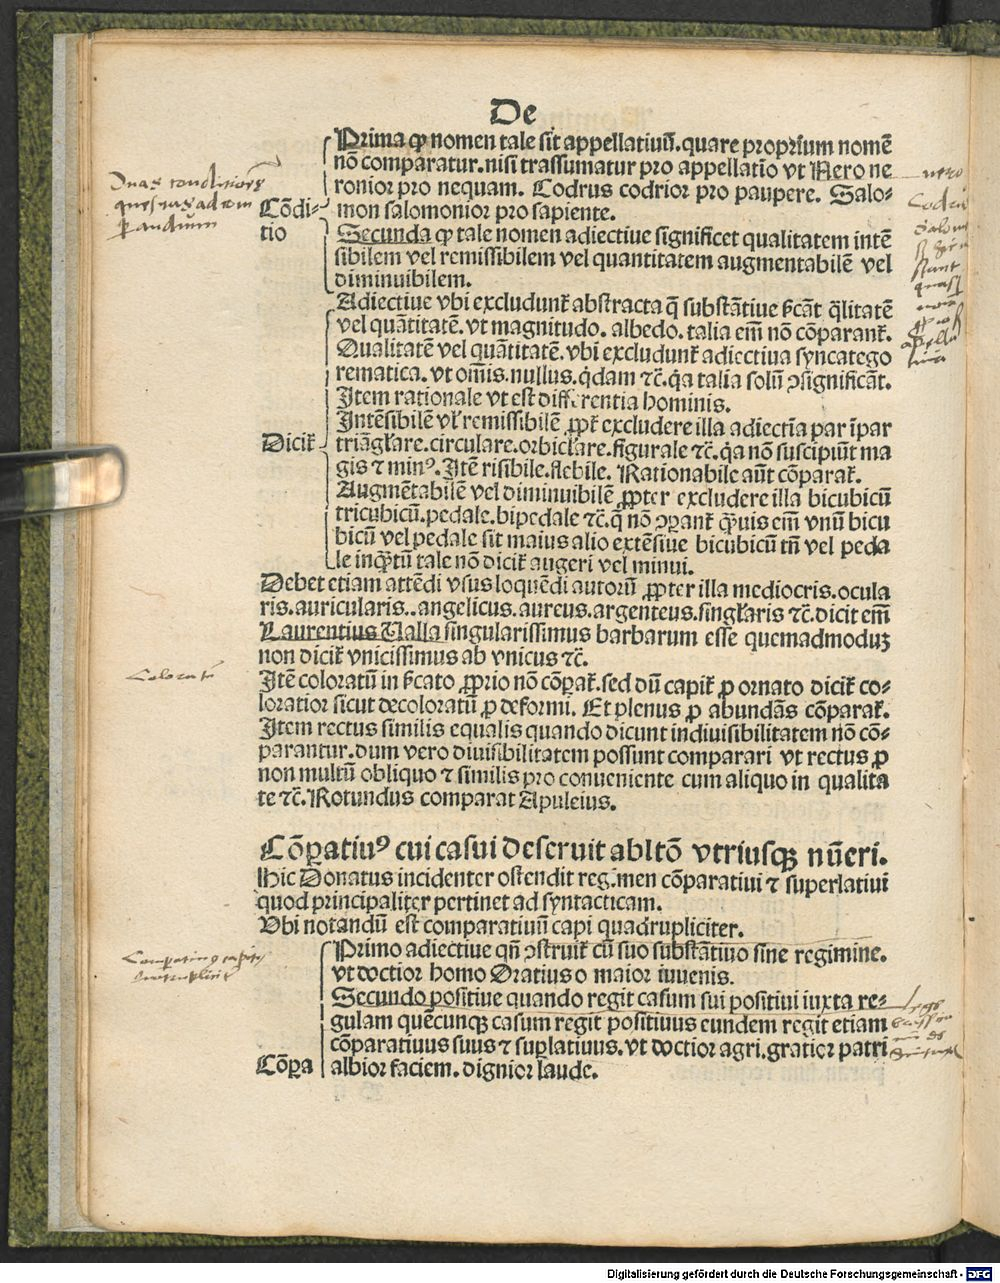 De
Prima ꝙ nomen tale sit appellatiuū. quare proprium nomē
nō comparatur. nisi trassumatur pro appellatio vt Nero ne
ronior pro nequam. Codrus codrior pro paupere. Salo-
Cōdi- mon salomonior pro sapiente.
tio Secunda ꝙ tale nomen adiectiue significet qualitatem intē
sibilem vel remissibilem vel quantitatem augmentabilē vel
diminuibilem.
Adiectiue vbi excludunt᷑ abstracta q̄ substātiue sig̃cāt q̄litatē
vel quātitatē. vt magnitudo. albedo. talia em̄ nō cōparant᷑.
Qualitatē vel quātitatē. vbi excludunt᷑ adiectiua syncatego
rematica. vt om̄is. nullus. q̇dam ⁊c̄. q̇a talia solū ꝯsignificāt.
Item rationale vt est differentia hominis.
Intēsibilē vl̓ remissibilē ꝓpt᷑ excludere illa adiectīa par īpar
Dicit᷑ triāgl̓are. circulare. orbicl̓are. figurale ⁊c̄. q̇a nō suscipiūt ma
gis ⁊ minꝰ. Itē risibile. flebile. Rationabile aūt cōparat᷑.
Augmētabilē vel diminuibilē ꝓpter excludere illa bicubicū
tricubicū. pedale. bipedale ⁊c̄. q̄ nō ꝯꝑant᷑ ꝙ̄uis em̄ vnū bicu
bicū vel pedale sit maius alio extēsiue bicubicū tn̄ vel peda
le inqꝫtū tale nō dicit᷑ augeri vel minui.
Debet etiam attēdi vsus loquēdi autorū ꝓpter illa mediocris. ocula
ris. auricularis.. angelicus. aureus. argenteus. singl̓aris ⁊c̄. dicit em̄
Laurentius Ualla singularissimus barbarum esse quemadmoduꝫ
non dicit᷑ vnicissimus ab vnicus ⁊c̄.
Itē coloratū in sig̃cato ꝓprio nō cōꝑat᷑. sed dū capit᷑ ꝓ ornato dicit᷑ co-
loratior sicut decoloratiū ꝓ deformi. Et plenus ꝓ abundās cōparat᷑.
Item rectus similis equalis quando dicunt indiuisibilitatem nō cō-
parantur. dum vero diuisibilitatem possunt comparari vt rectus ꝓ
non multū obliquo ⁊ similis pro conueniente cum aliquo in qualita
te ⁊c̄. Rotundus comparat Apuleius.
Cōꝑatiuꝰ cui casui deseruit ablt̄ō vtriusqꝫ nūeri.
Hic Donatus incidenter ostendit regimen cōparatiui ⁊ superlatiui
quod principaliter pertinet ad syntacticam.
Vbi notandū est comparatiuū capi quadrupliciter.
Primo adiectiue qn̄ ꝯstruit᷑ cū suo substātiuo sine regimine.
vt doctior homo Oratius o maior iuuenis.
Secundo positiue quando regit casum sui positiui iuxta re-
gulam quēcunqꝫ casum regit positiuus eundem regit etiam
cōparatiuus suus ⁊ suꝑlatiuus. vt doctior agri. gratior patri
Cōꝑa albior faciem. dignior laude.
Digitalisierung gefördert durch die Deutsche Forschungsgemeinschaft - DFG